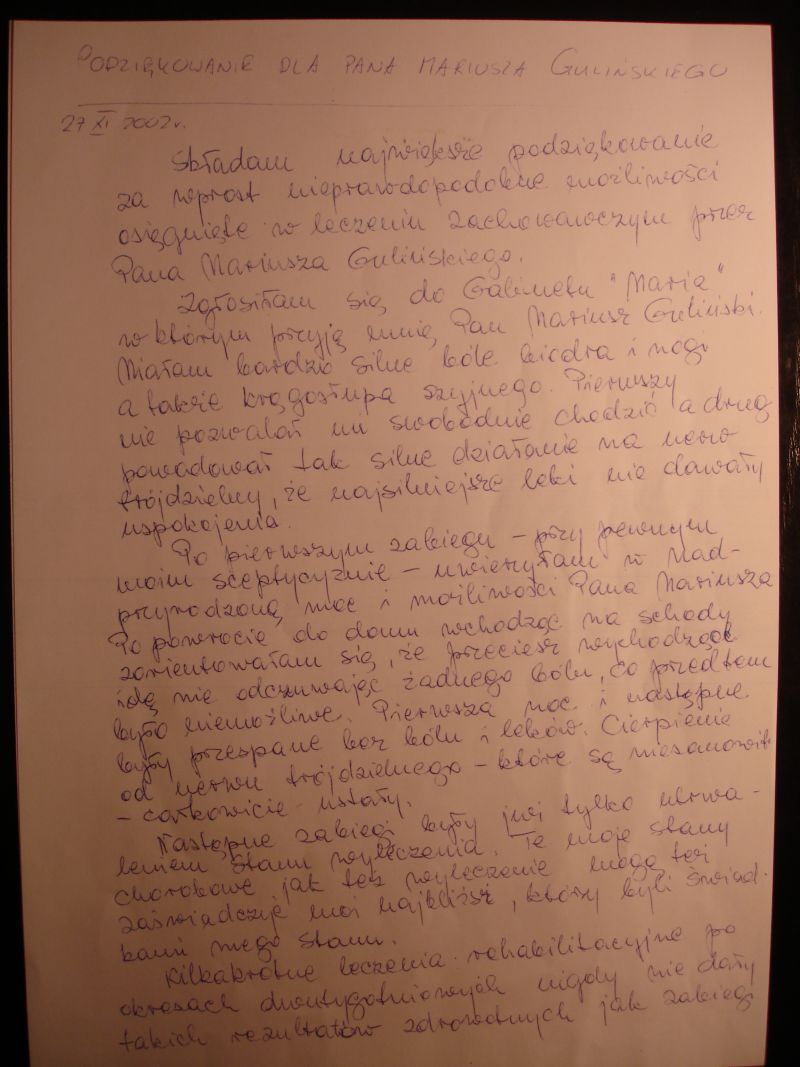 PODZIĘKOWANIE DLA PANA MARIUSZA GULIŃSKIEGO
27 XI 2002r.
Składam największe podziękowanie
za wprost nieprawdopodobne możliwości
osięgnięte w leczeniu zachowawczym przez
Pana Mariusza Gulińskiego.
Zgłosiłam się do Gabinetu "Maria"
w którym przyją mnię Pan Mariusz Guliński.
Miałam bardzo silne bóle biodra i nogi
a także kręgosłupa szyjnego. Pierwszy
nie pozwalał mi swobodnie chodzić a drugi
powodował tak silne działanie na nerw
trójdzielny, że najsilniejsze leki nie dawały
uspokojenia.
Po pierwszym zabiegu – przy pewnym
moim sceptycyźmie – uwierzyłam w nad-
przyrodzoną moc i możliwości Pana Mariusza
Po powrocie do domu wchodząc na schody
zorientowałam się, że przecież wychodząc
idę nie odczuwając żadnego bólu, co przedtem
było niemożliwe. Pierwsza noc i następne
były przespane bez bólu i leków. Cierpienie
od nerwu trójdzielnego – które są niesamowite
– całkowicie ustały.
Następne zabiegi były już tylko utrwa-
leniem stanu wyleczenia. Te moje stany
chorobowe jak też wyleczenie mogą też
zaświadczyć moi najbliżsi, którzy byli świad-
kami mego stanu.
Kilkakrotne leczenia rehabilitacyjne po
okresach dwutygotniowych nigdy nie dały
takich rezultatów zdrowotnych jak zabiegi